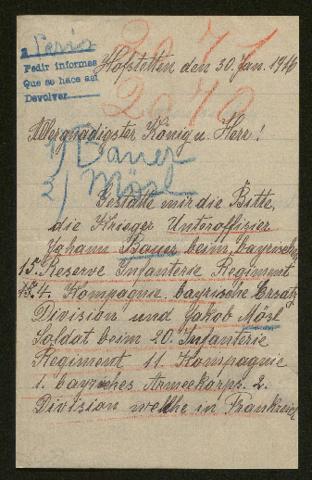 a París
Pedir informes
Que se hace así
Devolver
2071
2070
Hofstetten den 30. Jan. 1916
Allergnädigster König u. Herr!
1) Bauer
2) Mösl
Gestatte mir die Bitte,
die Krieger Unteroffizier
Johann Bauer beim bayrischen
15. Reserve Infanterie Regiment
4. Kompagnie bayrische Ersatz
Division und Jakob Mösl
Soldat beim 20. Infanterie
Regiment 11. Kompagnie
1. bayrisches Armeekorps 2.
Division welche in Frankreich